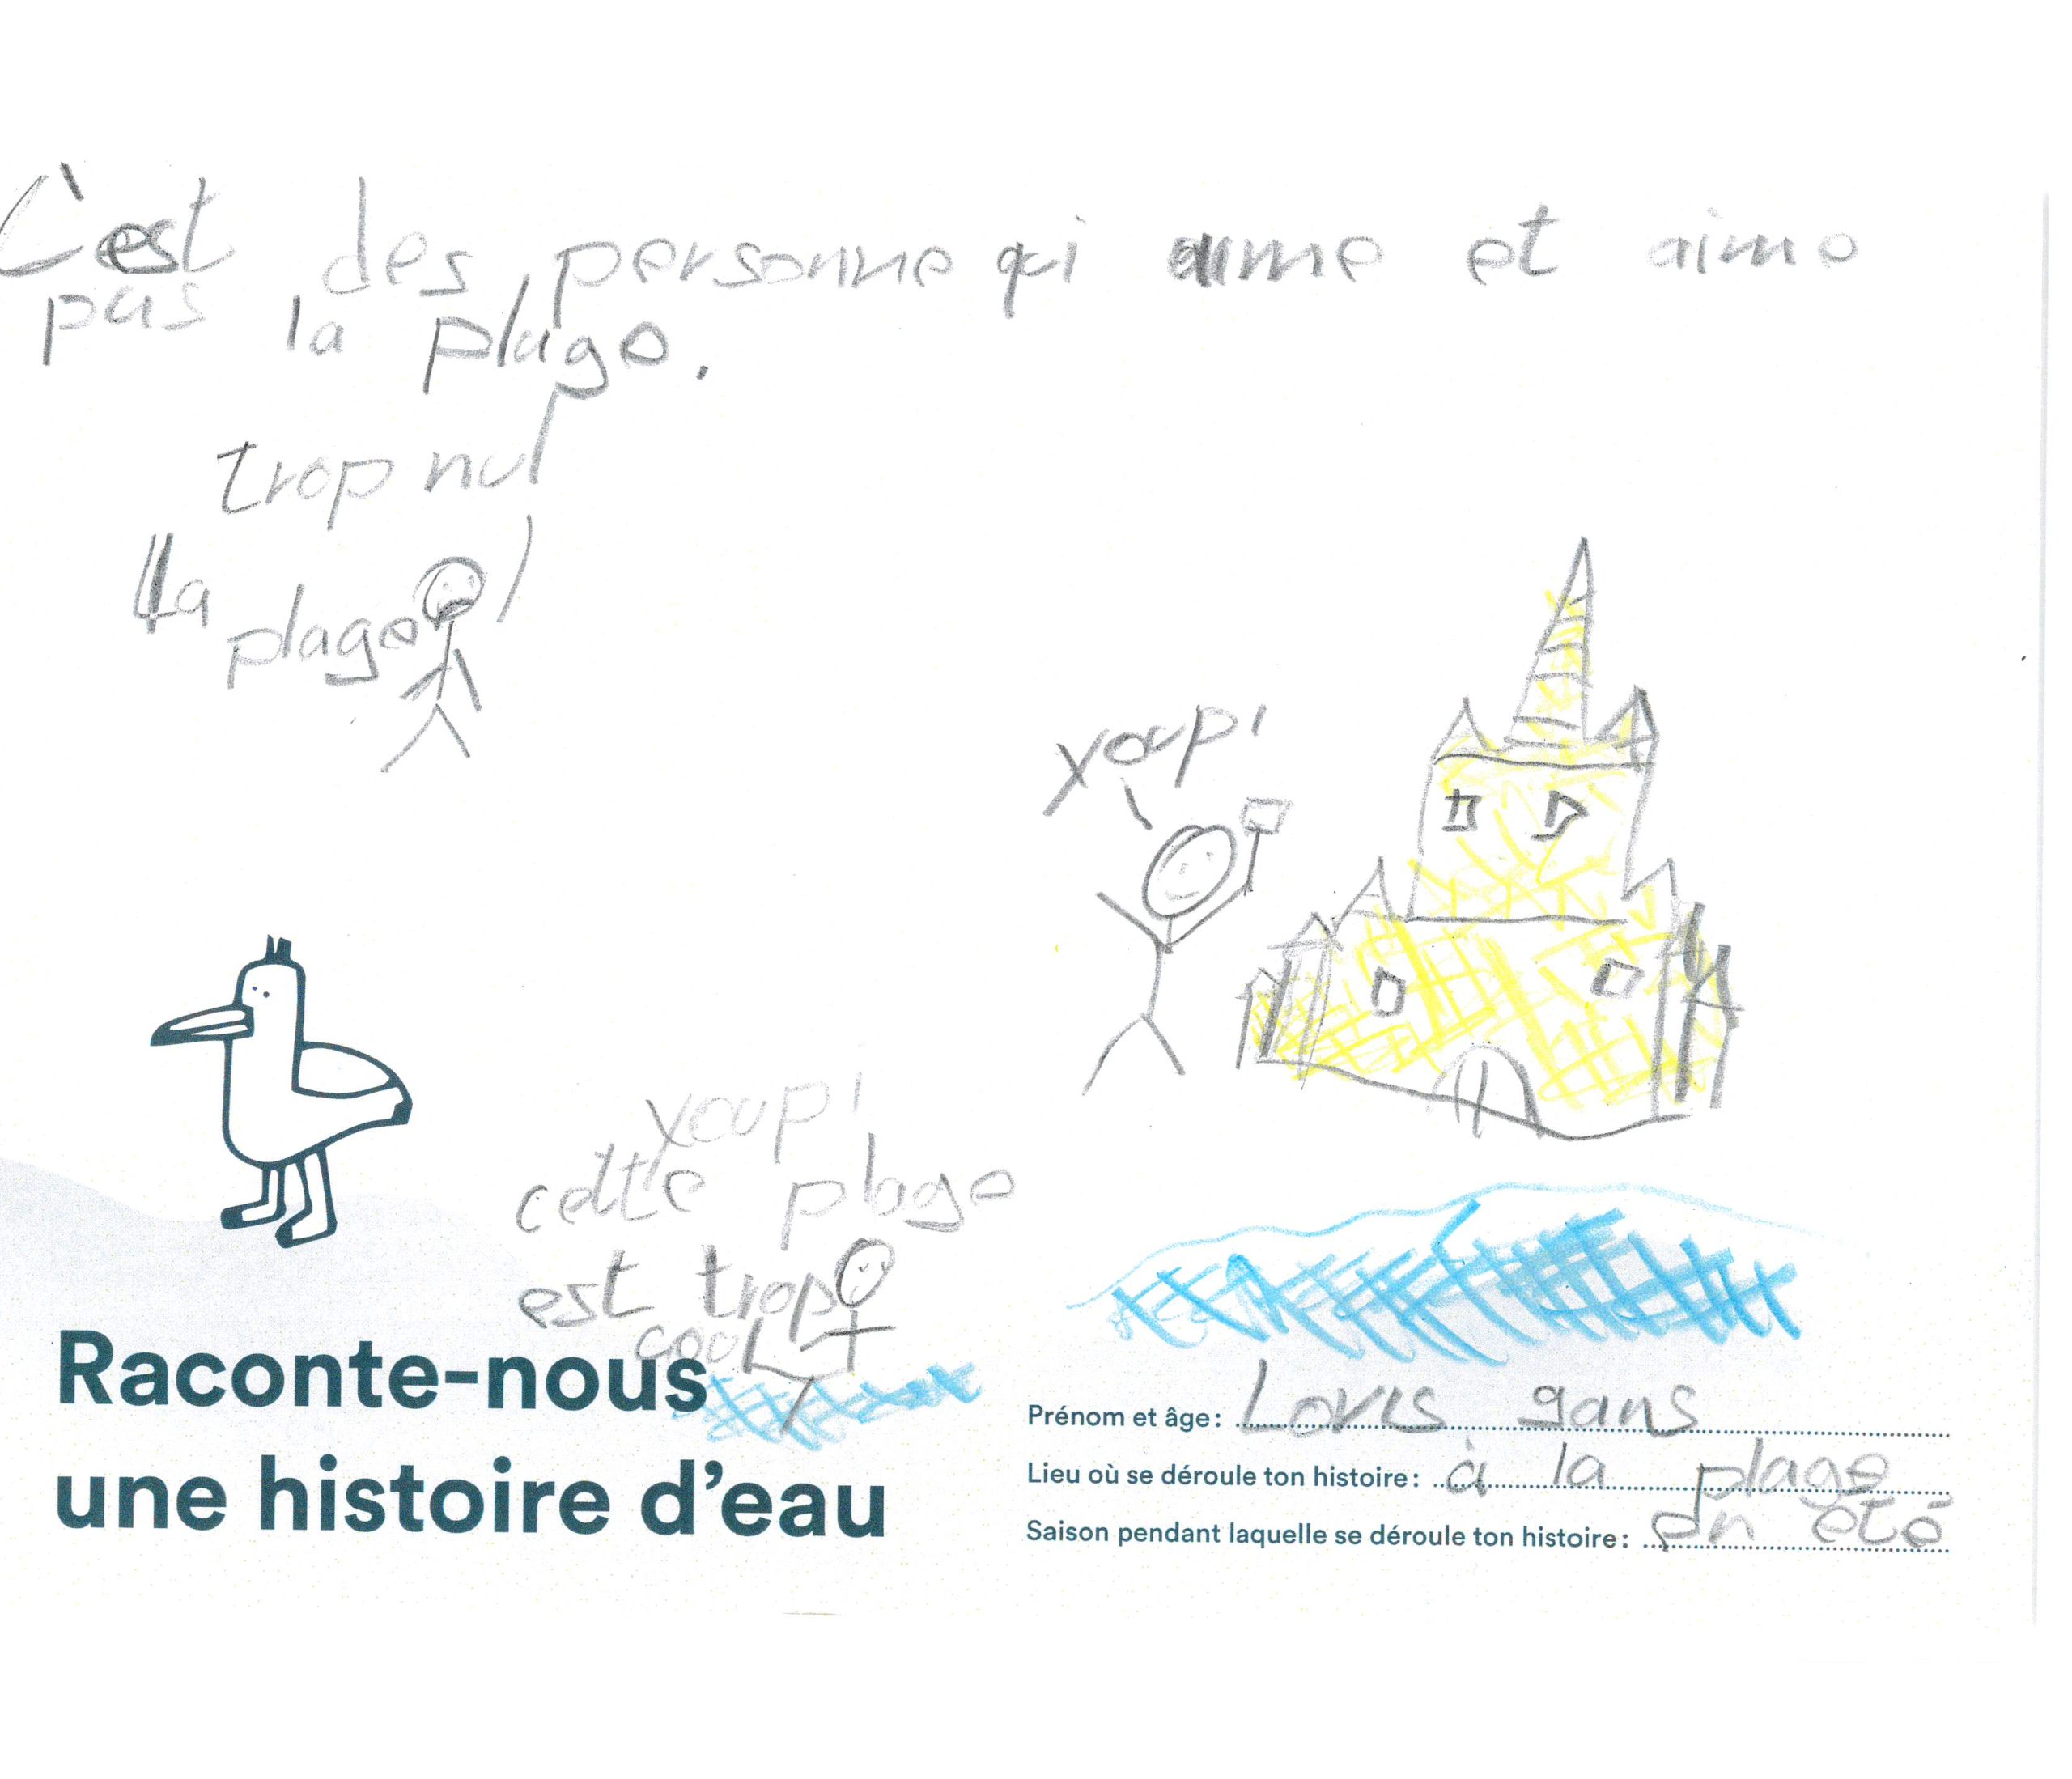 C'est des personne qui aime et aime
pas la plage.
trop nul
la
plage
youpi
youpi
cette plage
est trop
cool
Raconte-nous
une histoire d'eau
Prénom et âge : Louis 9ans
Lieu où se déroule ton histoire : à la plage
Saison pendant laquelle se déroule ton histoire : en été